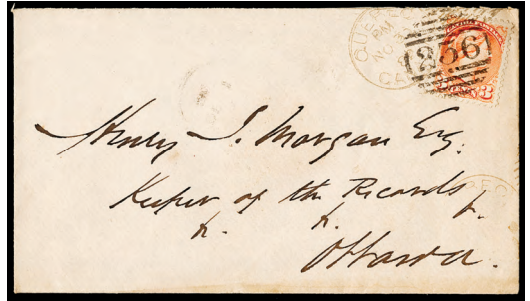 QUEBEC
PM
NO
CA
1256
3
Henry J. Morgan Esq.
Keeper of the Records
&c. &c. &c.
Ottawa.